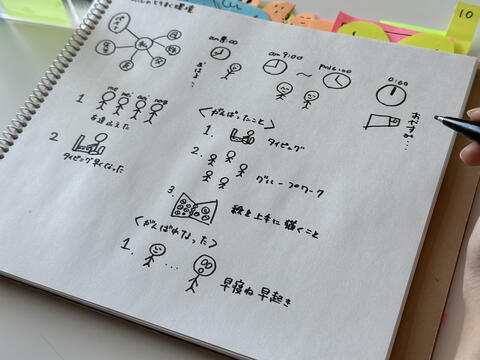 とりまく環境
私
am 8:00
am 9:00
〜
pm 6:00
0:00
おはよう…
おやすみ…
1.
友達出来た
2
タイピング早くなった
<がんばったこと>
1.
タイピング
2.
グループワーク
3.
絵を上手に描くこと
<がんばれなかった>
1.
早寝早起き
10